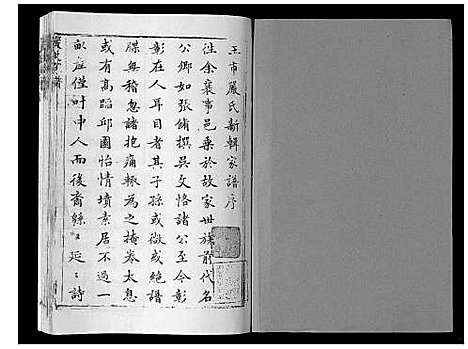 王市嚴氏新輯家譜序
往余襄事邑乗於故家世族前代名
公卿如張脩撰吳文恪諸公至今彰
彰在人耳目者其子孫或微或絶譜
牒無稽忽諸抱痛輒為之掩卷太息
或有高蹈邱園怡情墳素居不過一
畝庭僅叶中人而後裔緜〻延〻詩